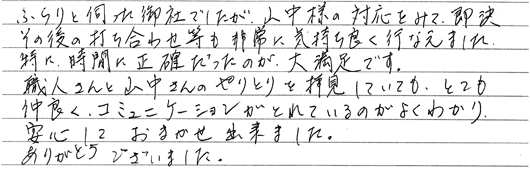 ふらりと伺った御社でしたが、山中様の対応をみて、即決
その後の打ち合わせ等も非常に気持ち良く行なえました。
特に、時間に正確だったのが、大満足です。
職人さんと山中さんのやりとりを拝見していても、とても
仲良く、コミュニケーションがとれているのがよくわかり、
安心して おまかせ出来ました。
ありがとうございました。